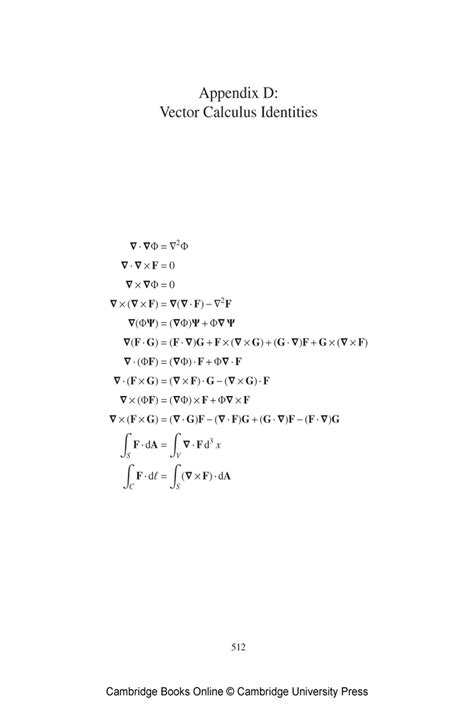 Appendix D:
Vector Calculus Identities
∇ · ∇Φ = ∇²Φ
∇ · ∇ × F = 0
∇ × ∇Φ = 0
∇ × (∇ × F) = ∇(∇ · F) − ∇²F
∇(ΦΨ) = (∇Φ)Ψ + Φ∇Ψ
∇(F · G) = (F · ∇)G + F × (∇ × G) + (G · ∇)F + G × (∇ × F)
∇ · (ΦF) = (∇Φ) · F + Φ∇ · F
∇ · (F × G) = (∇ × F) · G − (∇ × G) · F
∇ × (ΦF) = (∇Φ) × F + Φ∇ × F
∇ × (F × G) = (∇ · G)F − (∇ · F)G + (G · ∇)F − (F · ∇)G
∫_S F · dA = ∫_V ∇ · F d³x
∫_C F · dℓ = ∫_S (∇ × F) · dA
512
Cambridge Books Online © Cambridge University Press